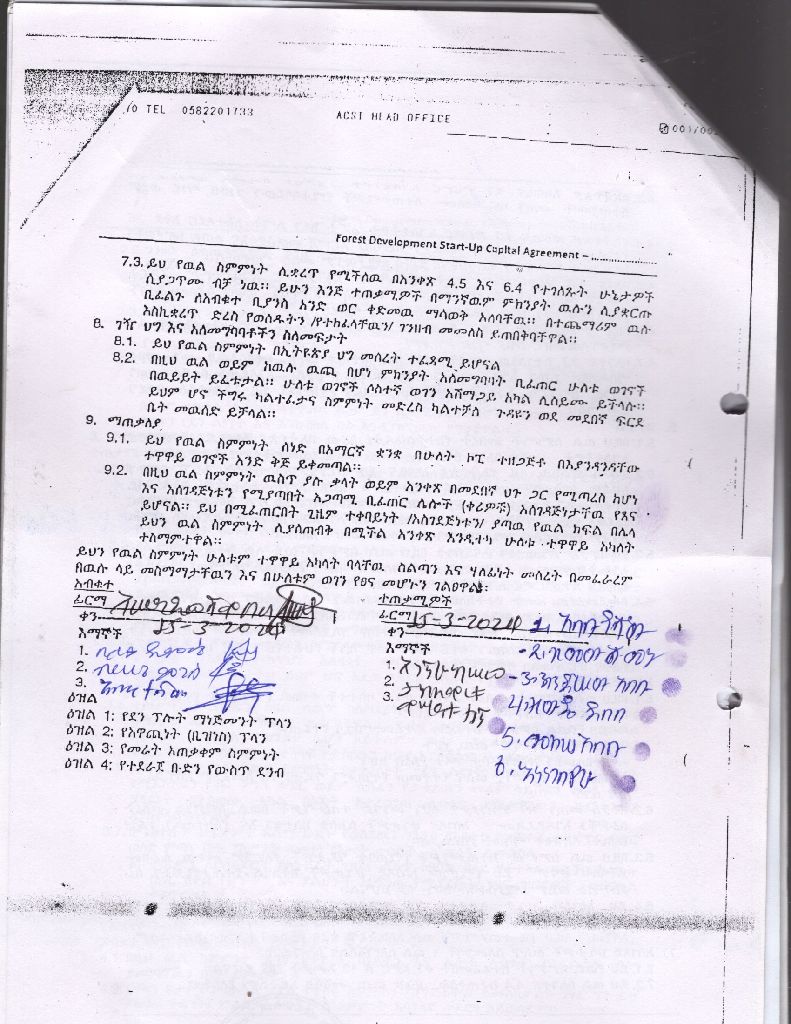 /0 TEL 0582201733 ACSI HEAD OFFICE 001/00
Forest Development Start-Up Capital Agreement – .....................
7.3. ይህ የዉል ስምምነት ሲቋረጥ የሚችለዉ በአንቀጽ 4.5 እና 6.4 የተገለጹት ሁኔታዎች
ሲያጋጥሙ ብቻ ነዉ፡፡ ይሁን እንጅ ተጠቃሚዎች በማንኛዉም ምክንያት ዉሉን ሲያቋርጡ
ቢፈልጉ ለአብቁተ ቢያንስ አንድ ወር ቀድመዉ ማሳወቅ አለባቸዉ፡፡ በተጨማሪም ዉሉ
እስኪቋረጥ ድረስ የወሰዱትን /የተከፈላቸዉን/ ገንዘብ መመለስ ይጠበቅባቸዋል፡፡
8. ገዥ ህግ እና አለመግባባቶችን ስለመፍታት
8.1. ይህ የዉል ስምምነት በኢትዮጵያ ህግ መሰረት ተፈጻሚ ይሆናል
8.2. በዚህ ዉል ወይም ከዉሉ ዉጪ በሆነ ምክንያት አለመግባባት ቢፈጠር ሁለቱ ወገኖች
በዉይይት ይፈቱታል፡፡ ሁለቱ ወገኖች ሶስተኛ ወገን አሸማጋይ አካል ሊሰይሙ ይችላሉ፡፡
ይህም ሆኖ ችግሩ ካልተፈታና ስምምነት መድረስ ካልተቻለ ጉዳዩን ወደ መደበኛ ፍርድ
ቤት መዉሰድ ይቻላል፡፡
9. ማጠቃለያ
9.1. ይህ የዉል ስምምነት ሰነድ በአማርኛ ቋንቋ በሁለት ኮፒ ተዘጋጅቶ በእያንዳንዳቸው
ተዋዋይ ወገኖች አንድ ቅጅ ይቀመጣል፡፡
9.2. በዚህ ዉል ስምምነት ዉስጥ ያሉ ቃላት ወይም አንቀጽ በመደበኛ ህጉ ጋር የሚጣረስ ከሆነ
እና አስገዳጅነቱን የሚያጣበት አጋጣሚ ቢፈጠር ሌሎች (ቀሪዎቹ) አስገዳጅነታቸዉ የጸና
ይሆናል፡፡ ይህ በሚፈጠርበት ጊዜም ተቀባይነት /አስገዳጅነቱን/ ያጣዉ የዉል ክፍል በሌላ
ይህን ዉል ስምምነት ሲያስጠብቅ በሚችል አንቀጽ እንዲተካ ሁለቱ ተዋዋይ አካላት
ተስማምተዋል፡፡
ይህን የዉል ስምምነት ሁለቱም ተዋዋይ አካላት ባላቸዉ ስልጣን እና ሃላፊነት መሰረት በመፈራረም
በዉሉ ላይ መስማማታቸዉን እና በሁለቱም ወገን የፀና መሆኑን ገልፀዋል፡፡
አብቁተ
ተጠቃሚዎች
ፊርማ
ፊርማ
ቀን 15-3-2024
ቀን 15-3-2024
እማኞች
እማኞች
1.
2.
3.
1.
2.
3.
ዕዝል
ዕዝል 1: የደን ፕሎት ማነጅመንት ፕላን
ዕዝል 2: የአዋጪነት (ቢዝነስ) ፕላን
ዕዝል 3: የመሬት አጠቃቀም ስምምነት
ዕዝል 4: የተደራጀ ቡድን የውስጥ ደንብ